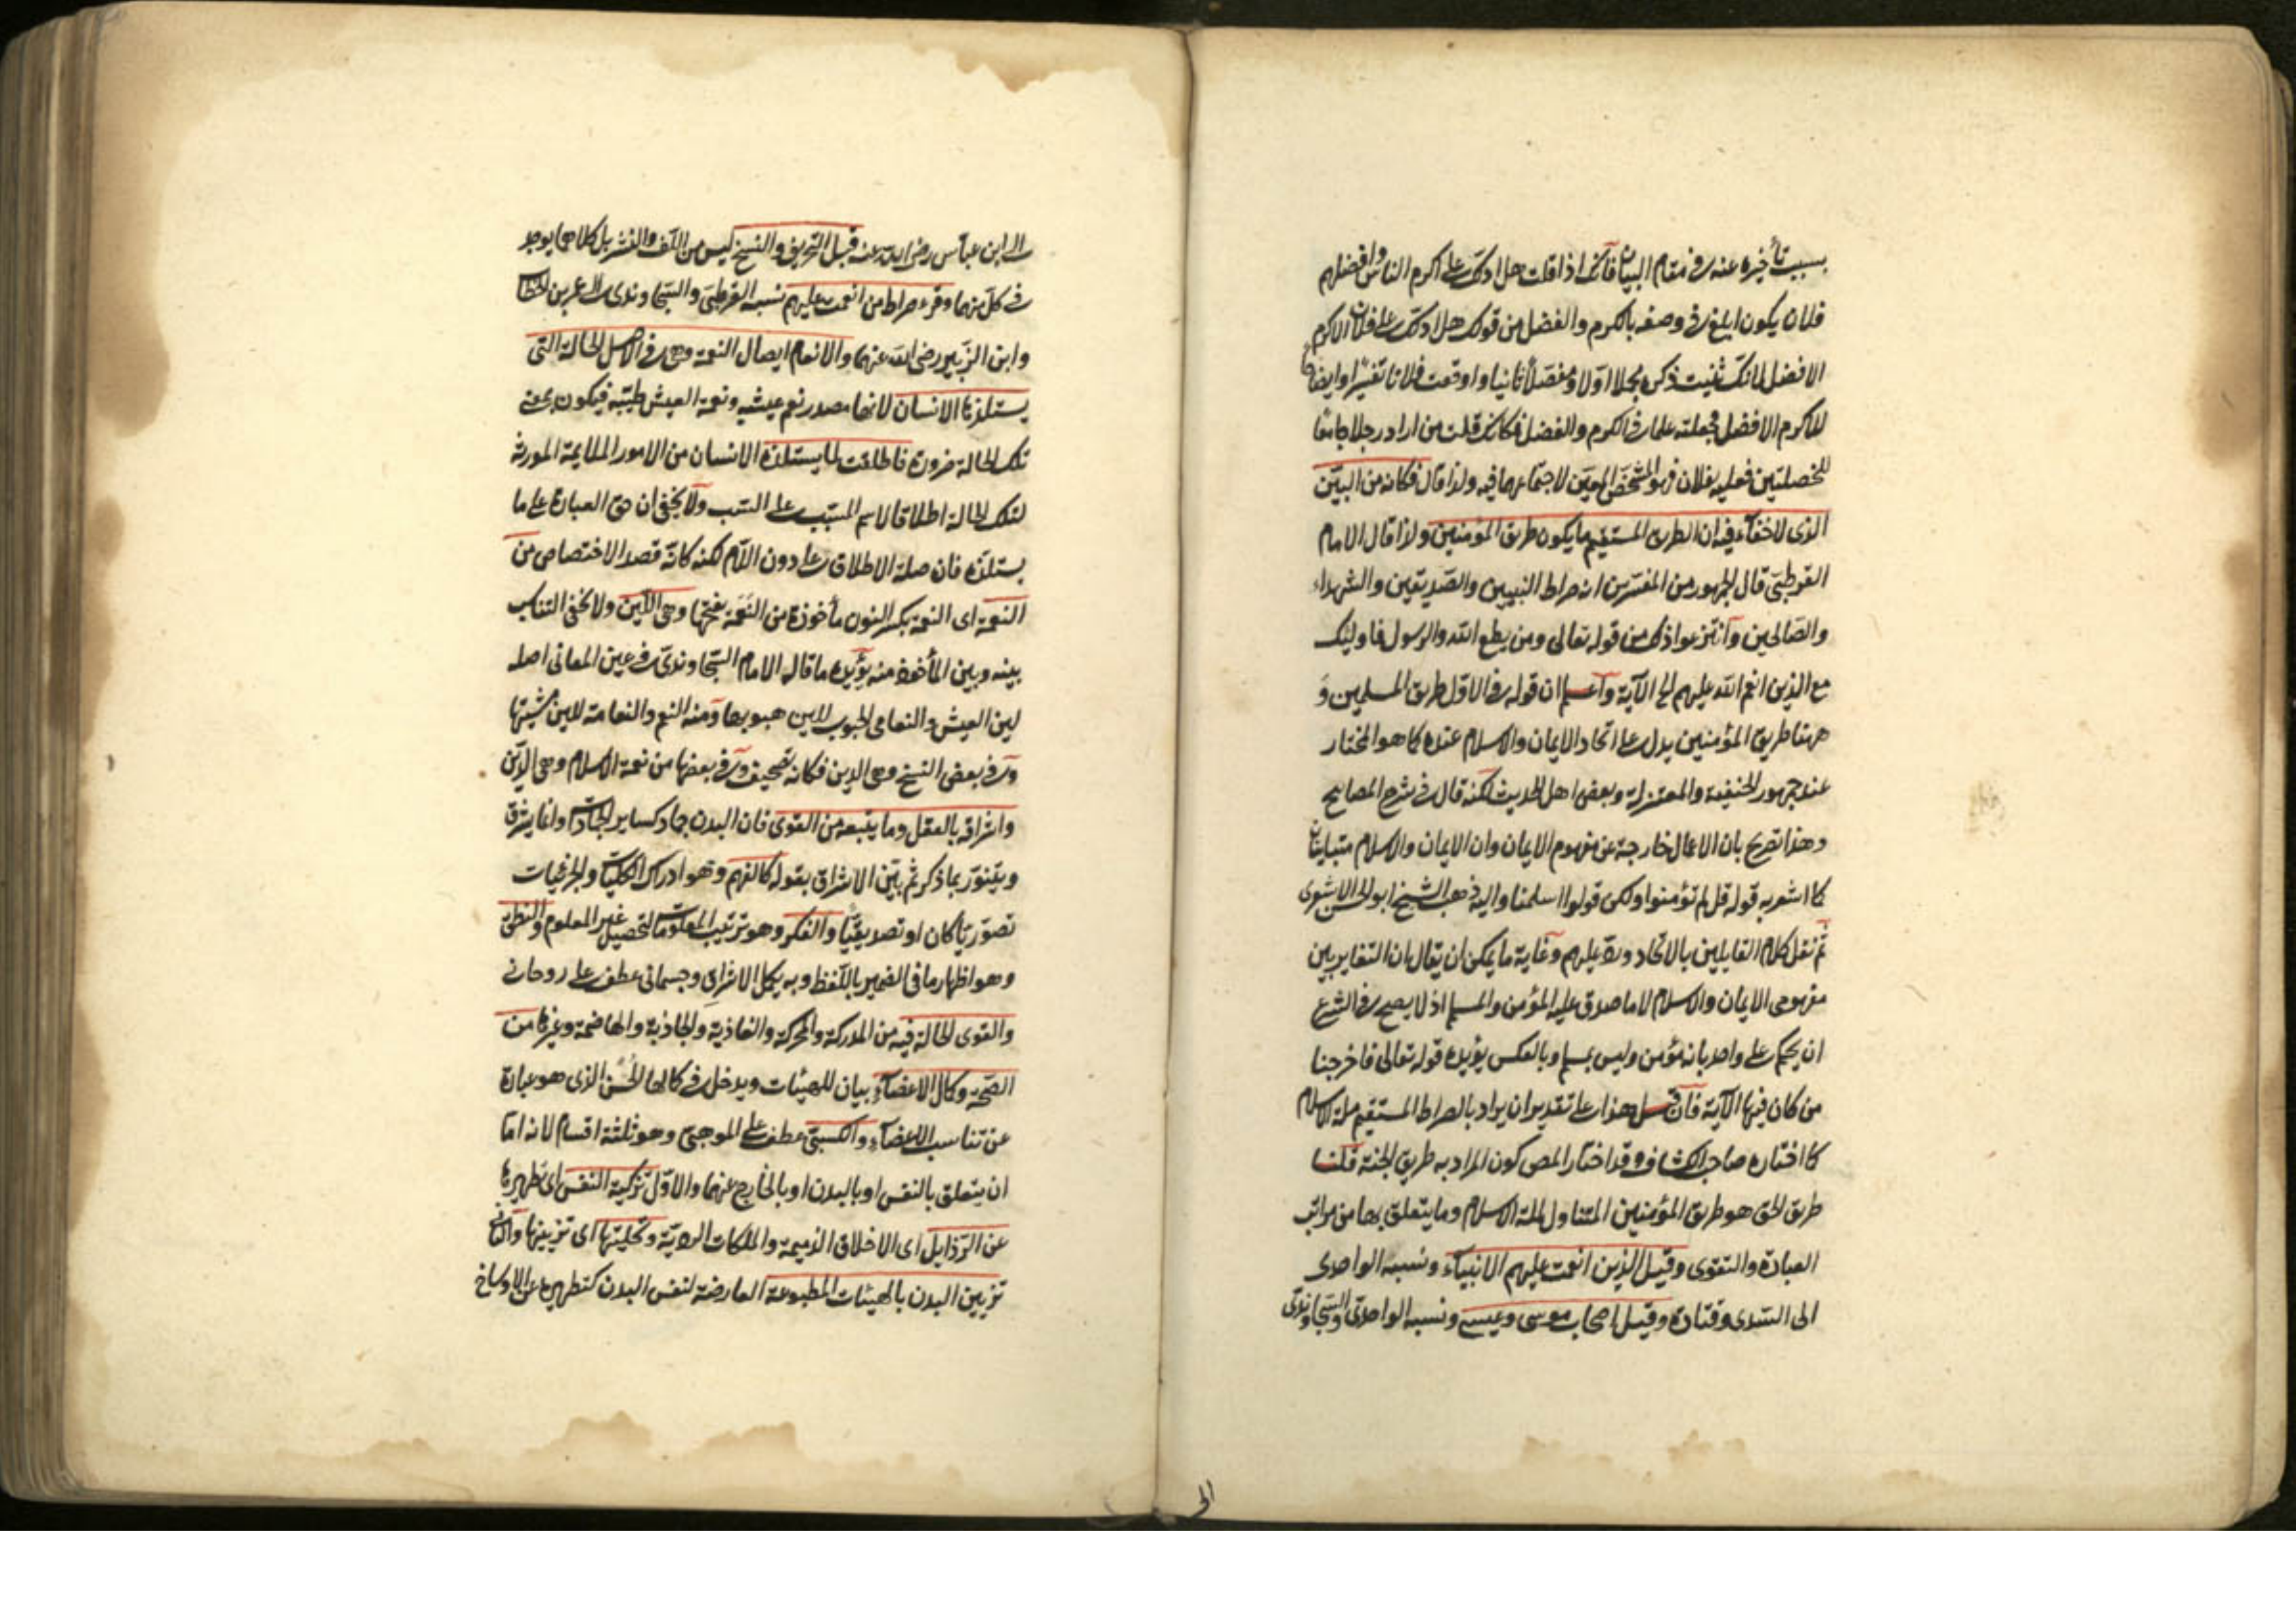 بسبب تأخيره عنه في مقام البيان فانك اذا قلت هل ادلك على اكرم الناس وافضلهم
فلان يكون ابلغ في وصفه بالكرم والفضل من قولك هل ادلك على فلان الاكرم
الافضل لانك ثنيت ذكره مجملا اولا ومفصلا ثانيا واوقعت فلانا تفسيرا وايضاحا
للاكرم الافضل فجعلته علما في الكرم والفضل فكانك قلت من اراد رجلا جامعا
للخصلتين فعليه بفلان فهو المشخص المعين لاجتماعهما فيه ولذا قال فكانه من البين
الذى لاخفاء فيه ان الطريق المستقيم ما يكون طريق المؤمنين ولذا قال الامام
القرطبى قال الجمهور من المفسرين انه صراط النبيين والصديقين والشهداء
والصالحين وانتزعوا ذلك من قوله تعالى ومن يطع الله والرسول فاوليك
مع الذين انعم الله عليهم الى الآية واعلم ان قوله في الاول طريق المسلمين و
ههنا طريق المؤمنين يدل على اتحاد الايمان والاسلام عنده كما هو المختار
عند جمهور الحنفية والمعتزلة وبعض اهل الحديث لكنه قال في شرح المصابيح
وهذا تصريح بان الاعمال خارجة عن مفهوم الايمان وان الايمان والاسلام متباينان
كما اشعر به قوله قل لم تؤمنوا ولكن قولوا اسلمنا واليه ذهب الشيخ ابو الحسن الاشعرى
ثم نقل كلام القايلين بالاتحاد ورد عليهم وغاية ما يمكن ان يقال ان التغاير بين
مفهومى الايمان والاسلام لا ما صدق عليه المؤمن والمسلم اذ لا يصح في الشرع
ان يحكم على واحد بانه مؤمن وليس بمسلم او بالعكس يؤيده قوله تعالى فاخرجنا
من كان فيها الآية فان قيل هذا على تقدير ان يراد بالصراط المستقيم ملة الاسلام
كما اختاره صاحب الكشاف وقد اختار المص كون المراد به طريق الجنة قلنا
طريق الحق هو طريق المؤمنين المتناول لملة الاسلام وما يتعلق بها من مراتب
العبادة والتقوى وقيل الذين انعمت عليهم الانبياء ونسبه الواحدى
الى السدى وقتادة وقيل اصحاب موسى وعيسى ونسبه الواحدى والسجاوندى
الى
الى ابن عباس رضى الله عنه قبل التحريف والنسخ ليس من اللف والنشر بل كلاهما يوجد
في كل منهما وقرء صراط من انعمت عليهم نسبه القرطبى والسجاوندى الى عمر بن الخطاب
وابن الزبير رضى الله عنهما والانعام ايصال النعمة وهى في الاصل الحالة التى
يستلذها الانسان لانها مصدر نعم عيشه ونعمة العيش طيبه فيكون بمعنى
تلك الحالة ضرورة فاطلقت لما يستلذه الانسان من الامور الملايمة المورثة
لتلك الحالة اطلاقا لاسم المسبب على السبب ولا يخفى ان حق العبارة على ما
يستلذه فان صلة الاطلاق على دون اللام لكنه كانه قصد الاختصاص من
النعمة اى النعمة بكسر النون مأخوذة من النعمة بفتحها وهى اللين ولا يخفى التناسب
بينه وبين المأخوذ منه يؤيده ما قاله الامام السجاوندى في عين المعانى اصله
لين العيش والنعامى الجنوب للين هبوبها ومنه النعم والنعامة للين مشيتها
وفى بعض النسخ وهى الدين فكانه تصحيف وفى بعضها من نعمة الاسلام وهى الدين
واشراقه بالعقل وما يتبعه من القوى فان البدن جماد كساير الجمادات وانما يشرق
ويتنور بما ذكر ثم بين الاشراق بقوله كالفهم وهو ادراك الكليات والجزئيات
تصوريا كان او تصديقيا والفكر وهو ترتيب المعلومات لتحصيل غير المعلوم والنطق
وهو اظهار ما في الضمير باللفظ وبه يكمل الاشراق وجسمانى عطف على روحانى
والقوى الحالة فيه من المدركة والمحركة والغاذية والجاذبة والهاضمة وغيرها من
الصحة وكمال الاعضاء بيان للهيئات ويدخل في كمالها الحسن الذى هو عبارة
عن تناسب الاعضاء والكسبى عطف على الموهبى وهو ثلثة اقسام لانه اما
ان يتعلق بالنفس او بالبدن او بالخارج عنهما والاول تزكية النفس اى تطهيرها
عن الرذايل اى الاخلاق الذميمة والملكات الردية وتحليتها اى تزيينها والثانى
تزيين البدن بالهيئات المطبوعة العارضة لنفس البدن كتطهيره عن الاوساخ